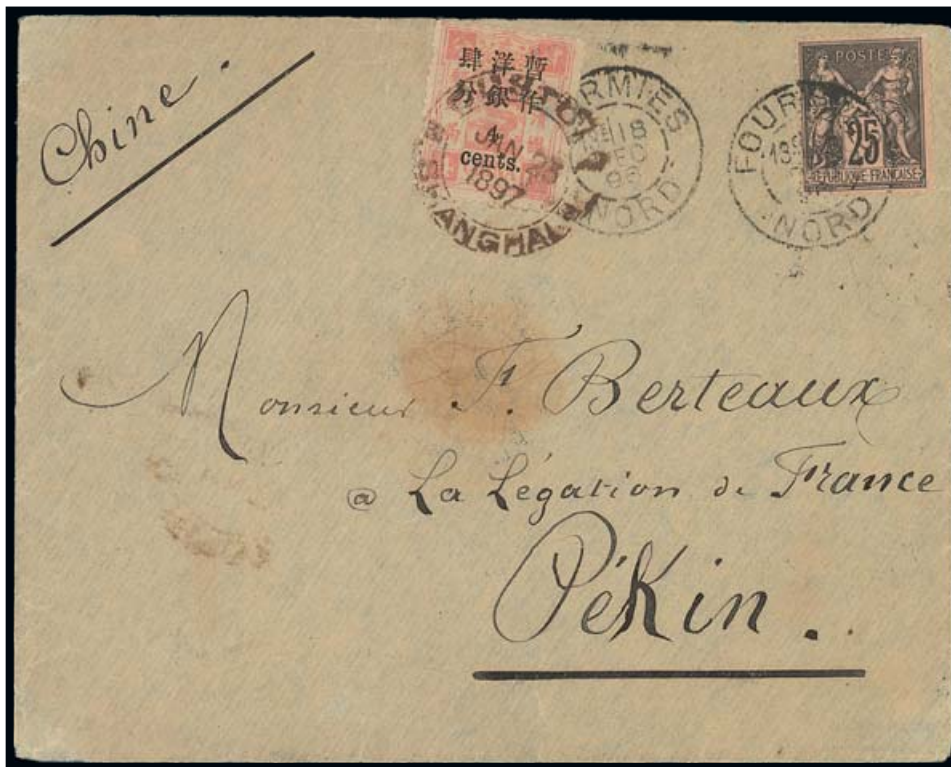 Chine.
暫作洋銀肆分
4
cents.
JAN 23
1897
SHANGHAI
FOURMIES
18
DEC
96
NORD
POSTE
25
REPUBLIQUE FRANÇAISE
FOUR
NORD
Monsieur F. Berteaux
@ La Légation de France
Pékin.